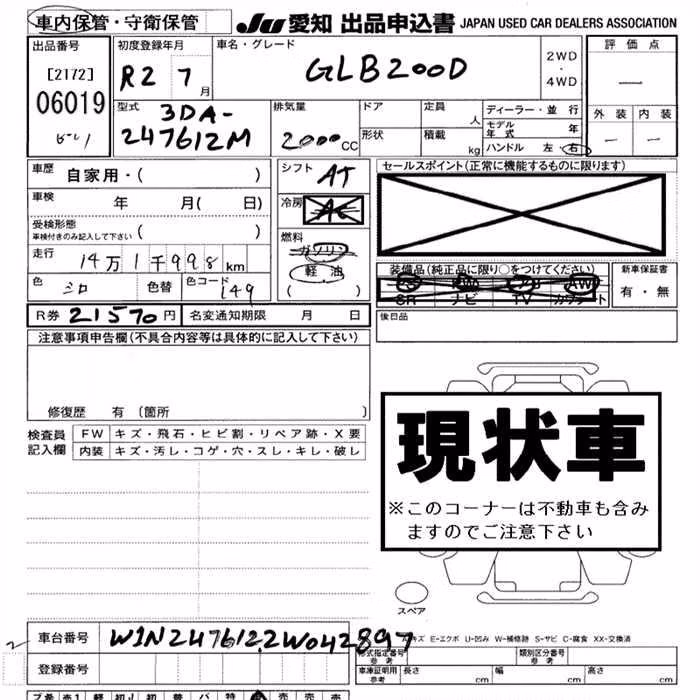 車内保管・守衛保管 JU 愛知 出品申込書 JAPAN USED CAR DEALERS ASSOCIATION
出品番号 [2172] 06019
初度登録年月 R2 7月
車名・グレード GLB200D
2WD・4WD
評価点 —
外装 — 内装 —
型式 3DA-247612M
排気量 2000cc
ドア 形状
定員 人 積載 kg
ディーラー・並行
モデル年式 年
ハンドル 左 右
車歴 自家用・( )
車検 年 月( 日)
受検形態 車検付きのみ記入して下さい ( )
走行 14万1千998km
色 シロ 色替 色コード 149
シフト AT
冷房 AC
燃料 ガソリン 軽油 ( )
セールスポイント(正常に機能するものに限ります)
装備品(純正品に限り○をつけてください)
SR ナビ TV
新車保証書 有・無
後日品
R券 21570円 名変通知期限 月 日
注意事項申告欄(不具合内容等は具体的に記入して下さい)
修復歴 有(箇所 )
検査員記入欄
FW キズ・飛石・ヒビ割・リペア跡・X要
内装 キズ・汚レ・コゲ・穴・スレ・キレ・破レ
現状車
※このコーナーは不動車も含みますのでご注意下さい
スペア
キズ E-エクボ U-凹み W-補修跡 S-サビ C-腐食 XX-交換済
車台番号 W1N2476122W042897
登録番号
型式指定番号 参考 類別区分番号 参考
車庫証明用 参考 長さ cm 幅 cm 高さ cm